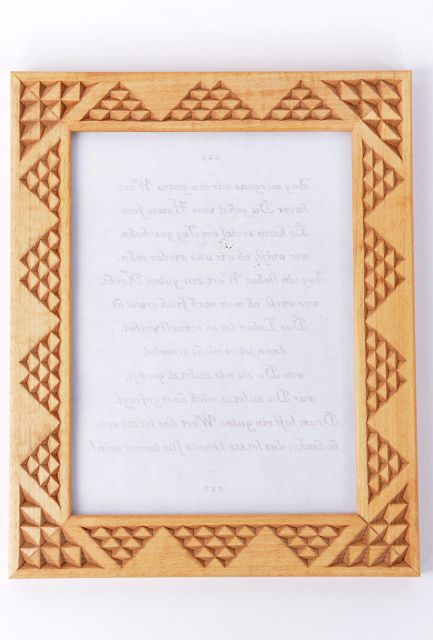 Sag morgens mir ein gutes Wort,
bevor Du gehst vom Hause fort.
Es kann soviel am Tag geschehn,
wer weiß, ob wir uns wiedersehn.
Sag ein liebes Wort zur guten Nacht,
wer weiß, ob man noch früh erwacht.
Das Leben ist so schnell vorbei,
dann ist es nicht einerlei,
was Du mir zuletzt gesagt,
was Du zuletzt mich hast gefragt.
Drum laß ein gutes Wort das letzte sein,
bedenke: das letzte könnte für immer sein!